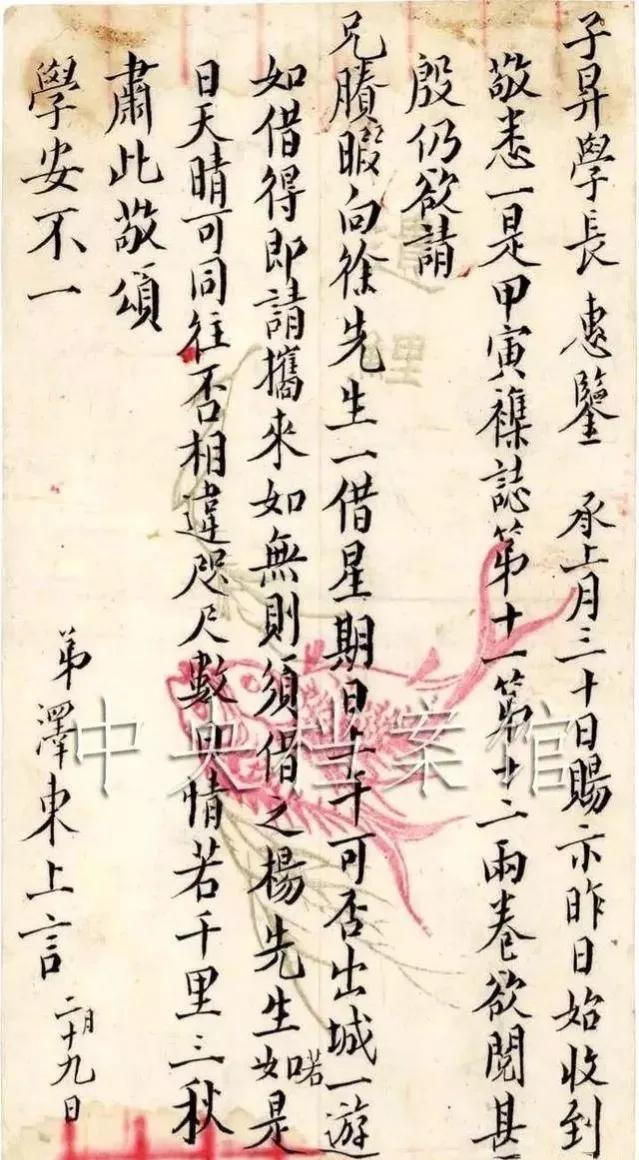 子昇學長惠鑒 承上月三十日賜示昨日始收到
敬悉一是甲寅襍誌第十一第十二兩卷欲閱甚
殷仍欲請
兄賸暇向徐先生一借星期日上午可否出城一遊
如借得即請攜來如無則須借之楊先生如喏是
日天晴可同往否相違咫尺數日情若千里三秋
肅此敬頌
學安不一
弟澤東上言 二月十九日
中央档案馆